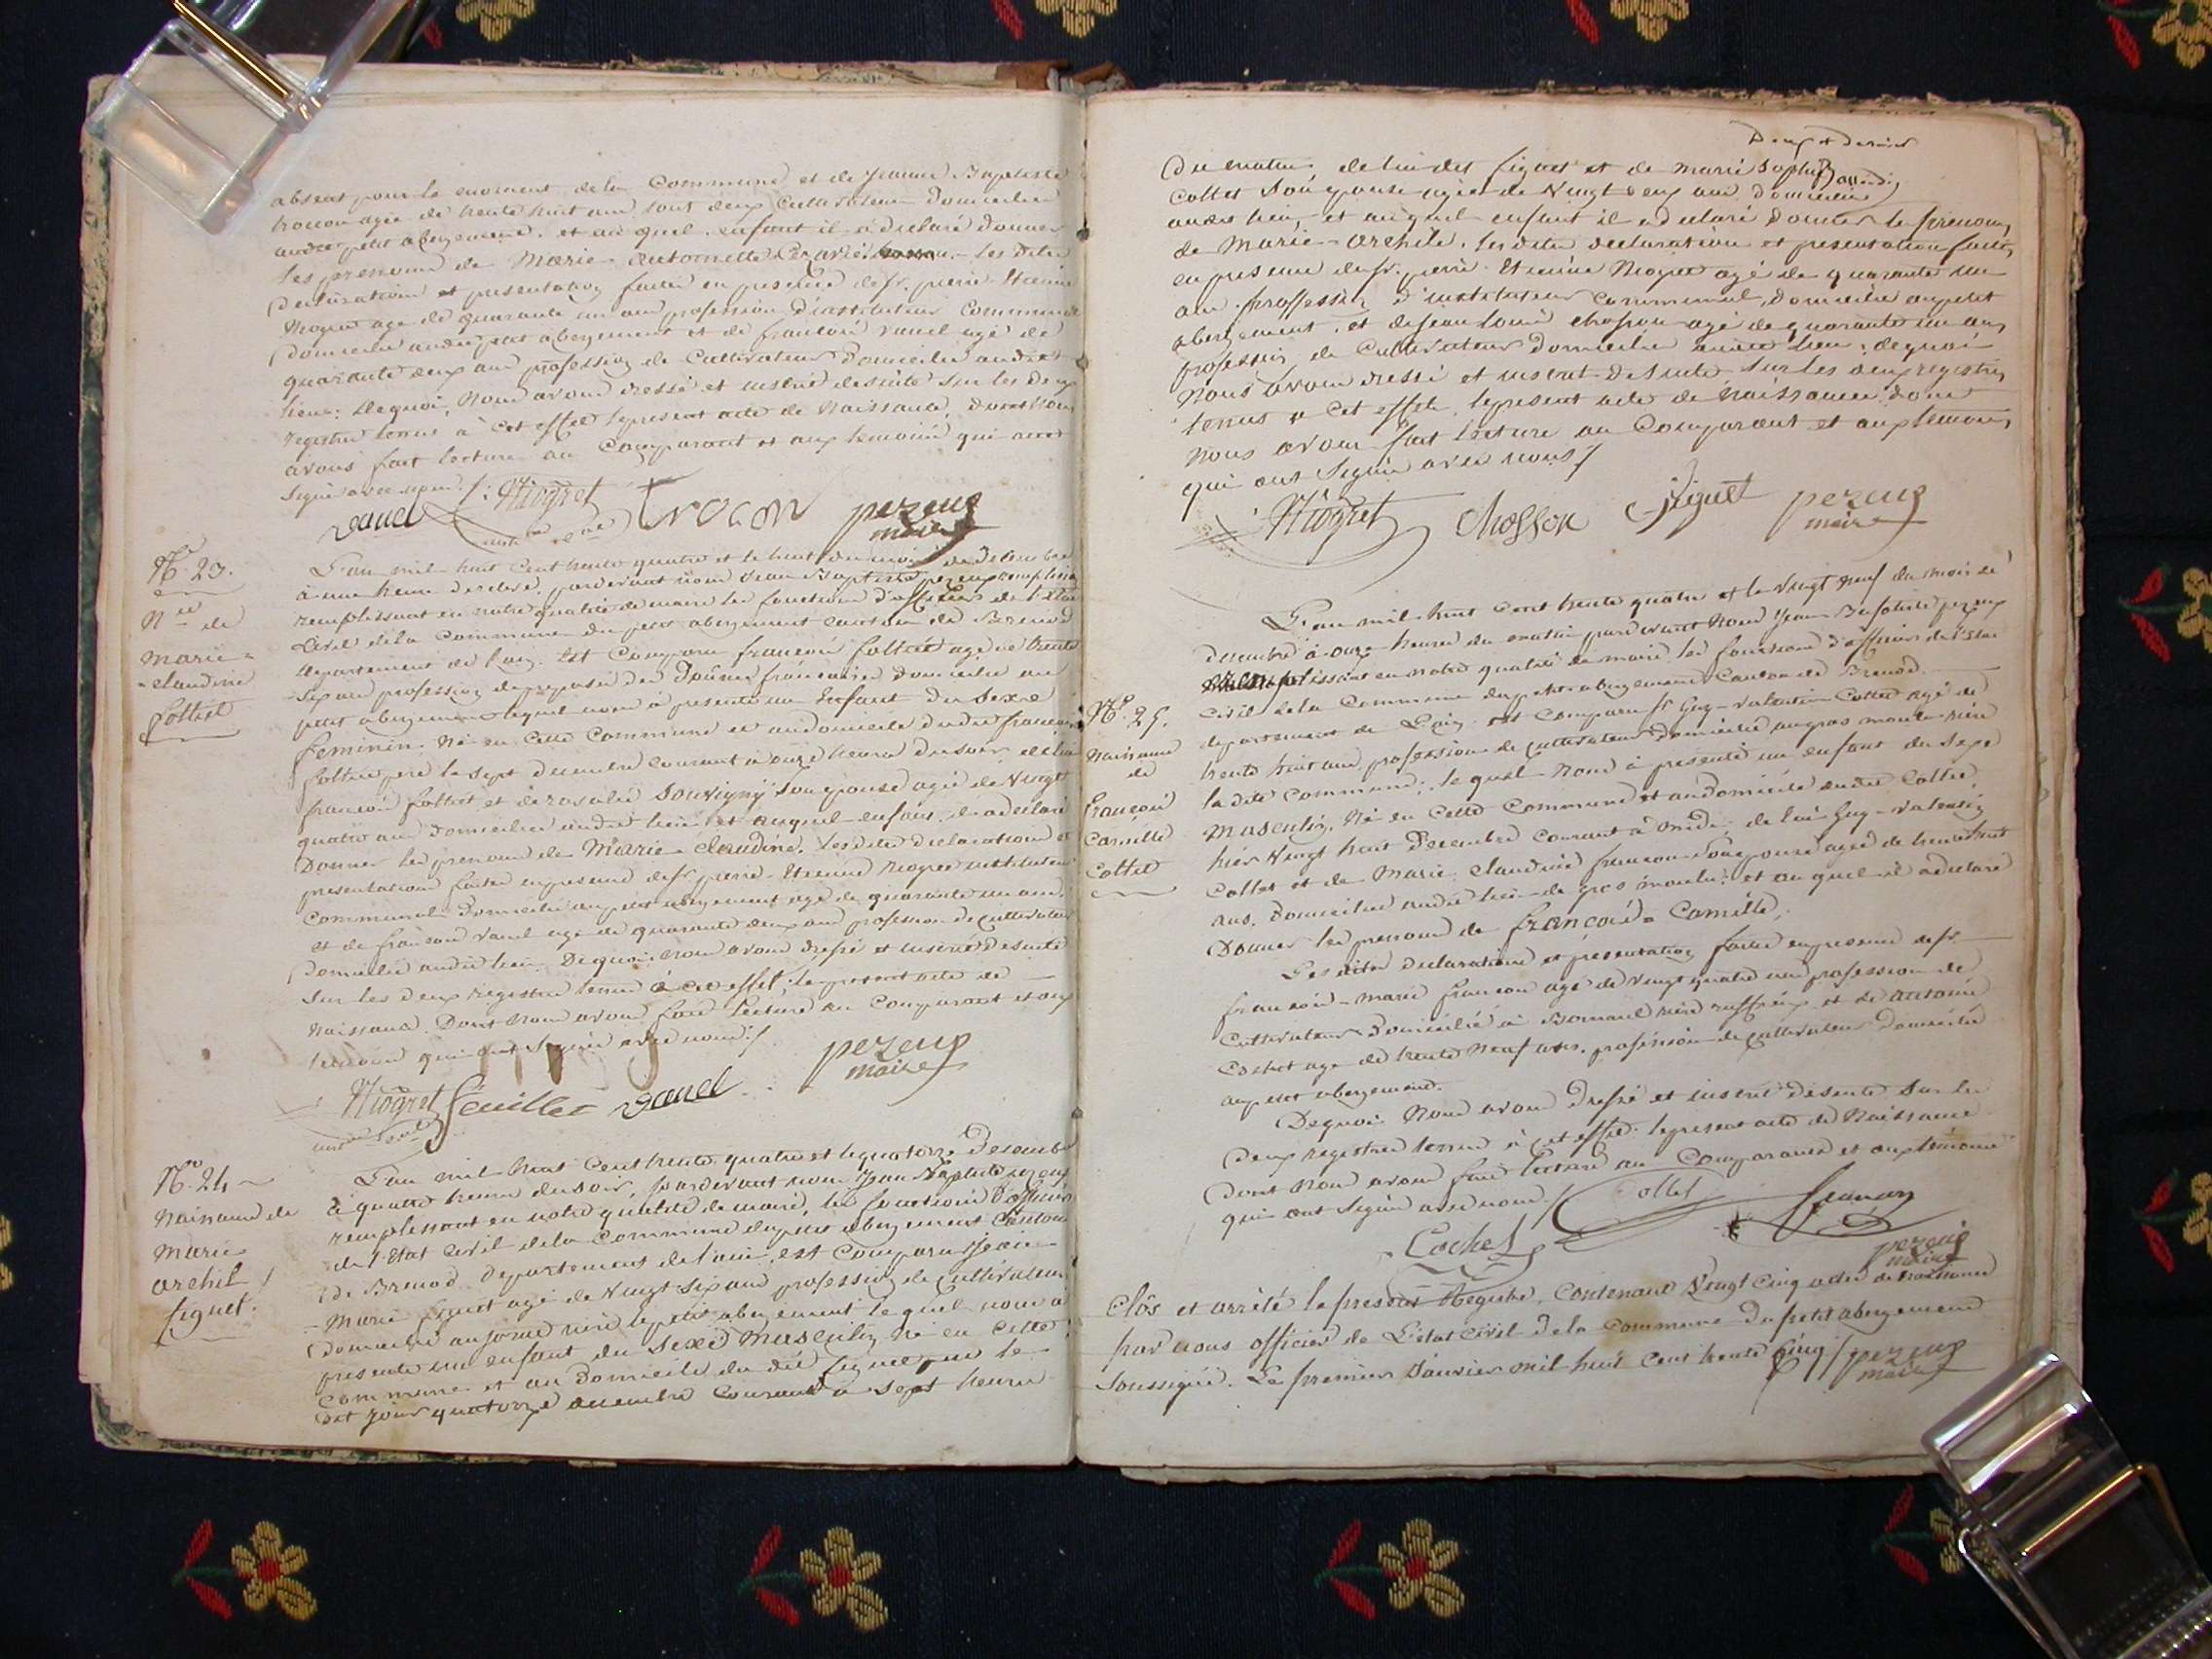 absent pour le moment de la Commune et de Jeanne Baptiste
trocon agée de trente huit ans tout deux Cultivateurs Domiciliés
audit petit abergement. et au quel enfant il a déclaré donner
les prenoms de Marie Antoinette les dites
Declaration et presentation faites en presence de sr. pierre Etienne
Niogret agé de quarante un ans profession d'instituteur Communal
Domicilié audit petit abergement et de francois vanel agé de
quarante deux ans profession de Cultivateur Domicilié audit
lieu. De quoi, Nous avons dressé et inséré desuite sur les deux
registres tenus à cet effet le present acte de Naissance, Dont nous
avons fait lecture au Comparant et aux temoins qui ont
signé avec nous /.
vanel Niogret trocon pezeux
maire
No. 23.
Nce de
Marie =
= claudine
follict
L'an mil huit Cent trente quatre et le huit du mois de decembre
à une heure pardevant nous Jean Baptiste pezeux
remplissant en notre qualité de maire les fonctions d'officier de l'Etat
Civil de la Commune du petit abergement canton de Brenod
departement de l'ain. Est Comparu francois agé de trente
six ans profession de preposé des Douanes Domicilié au
petit abergement lequel nous à presenté un Enfant du Sexe
feminin. Né en Cette Commune et au domicile dudit francois
pere le sept decembre courant à onze heures du soir, de lui
francois et de rosalie Souvigny son epouse agée de Vingt
quatre ans domiciliés audit lieu et auquel enfant, il a declaré
Donner les prenoms de Marie Claudine. Lesdites declaration et
presentation faites en presence de sr pierre Etienne Niogret instituteur
Communal Domicilié au petit abergement agé de quarante un ans
et de francois vanel agé de quarante deux ans profession de Cultivateur
Domicilié audit lieu. De quoi nous avons dressé et inséré desuite
sur les deux registres tenus à cet effet, le present acte de
Naissance. Dont nous avons fait Lecture au Comparant et aux
temoins qui ont signé avec nous /.
Niogret vanel pezeux
maire
No. 24
Naissance de
Marie
archil
figuet.
L'an mil huit Cent trente quatre et le quatorze Decembre
à quatre heures du soir, pardevant nous Jean Baptiste pezeux
remplissant en notre qualité de maire, les fonctions d'officier
de l'Etat Civil de la Commune du petit abergement Canton
de Brenod Departement de l'ain, est Comparu Jean
Marie figuet agé de Vingt six ans profession de Cultivateur
Domicilié au rière le petit abergement lequel nous à
presenté un enfant du Sexe Masculin Né en Cette
Commune et au Domicile du dit figuet le
dit jour quatorze decembre courant à sept heures
Deux et dernier
du matin, de lui dit figuet et de marie Sophie
Collet Son epouse agée de Vingt deux ans domiciliés
audit lieu, et auquel enfant il a declaré Donner les prenoms
de Marie = Archile. les dites declaration et presentation faites
en presence de sr. pierre Etienne Niogret agé de quarante un
ans proffession d'instituteur Communal, domicilié au petit
abergement. et de Jean Louis chosson agé de quarante un ans
profession de Cultivateur Domicilié audit lieu; de quoi
Nous avons dressé et inseré Desuite Sur les deux registres
tenus a Cet effet, le present acte de Naissance, dont
nous avons fait lecture au Comparant et aux temoins
qui ont Signé avec nous /
Niogret Chosson figuet pezeux
maire
No. 25.
Naissance
de
François
Camille
Cottet
L'an mil huit cent trente quatre et le vingt neuf du mois de
decembre à onze heures du matin pardevant Nous Jean Baptiste pezeux
remplissant en notre qualité de maire les fonctions d'officier de l'Etat
Civil de la Commune du petit abergement Canton de Brenod
departement de l'ain est Comparu sr Guy-valentin Collet agé de
trente huit ans profession de Cultivateur domicilié au gros moulu rière
la dite Commune; lequel Nous à presenté un enfant du Sexe
Masculin. Né en Cette Commune et au domicile dudit Collet
hier Vingt huit Decembre Courant à midi; de lui Guy-valentin
Collet et de Marie Claudine francon Son epouse agée de trente huit
ans. Domiciliés audit lieu de gros moulu: et au quel il a declaré
Donner les prenoms de françois = Camille.
Lesdites declaration et presentation faites en presence de sr
francois-marie francon agé de vingt quatre ans profession de
Cultivateur Domicilié à rière ruffieux et de antoine
Cochet agé de trente Neuf ans. profession de Cultivateur Domicilié
au petit abergement.
De quoi Nous avons Dressé et inseré desuite Sur les
Deux registres tenus à cet effet le present acte de Naissance
Dont nous avons fait lecture au Comparant et aux temoins
qui ont Signé avec nous /. Collet francon
Cochet pezeux
maire
Clôs et arrêté le present Registre, Contenant Vingt Cinq actes de naissance
par nous officier de L'etat Civil de la Commune du petit abergement
Soussigné. Le premier Janvier mil huit Cent trente Cinq / pezeux
maire